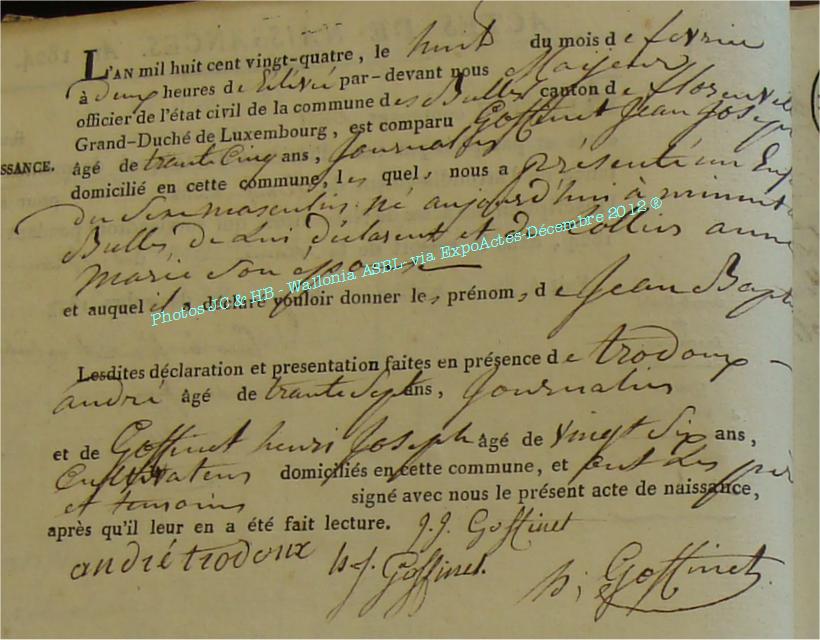 L'AN mil huit cent vingt-quatre, le huit du mois de fevrier
à deux heures de Rélévée par-devant nous Mayeur
officier de l'état civil de la commune des Bulles canton de florenvil
Grand-Duché de Luxembourg, est comparu Goffinet Jean Joseph
SSANCE. âgé de trante Cinq ans, Journalier
domicilié en cette commune, les quels nous a présenté un Enfa
du Sexe masculin né aujourd'hui à minuit à
Bulles de Lui déclarent et de Collin anne
marie Son épouse
et auquel il a déclaré vouloir donner les prénoms de Jean Bapt
Photos JC & HB - Wallonia ASBL- via ExpoActes-Décembre 2012 ®
Lesdites déclaration et presentation faites en présence de trodoux
andré âgé de trante Sept ans, Journalier
et de Goffinet henri Joseph âgé de vingt Six ans,
Cultivateur domiciliés en cette commune, et ont Les pèr
et temoins signé avec nous le présent acte de naissance,
après qu'il leur en a été fait lecture. J.J. Goffinet
andré trodoux h J. Goffinet. h; Goffinet